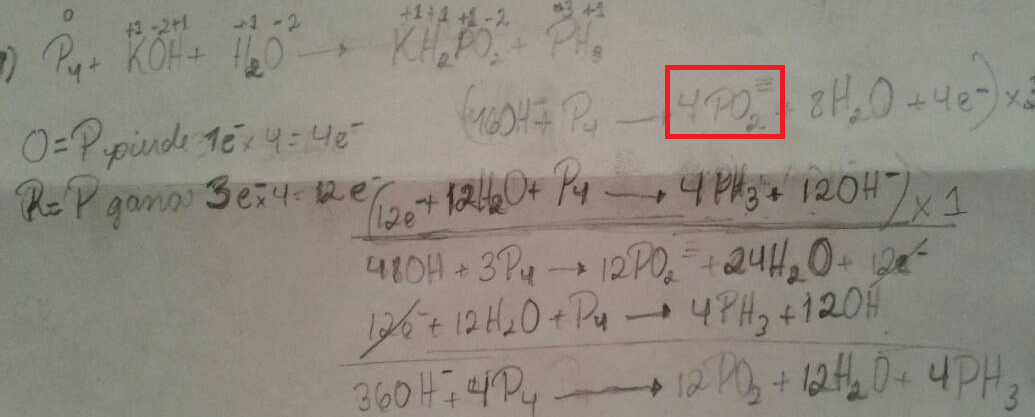 0 +1 -2 +1 +1 -2 +1 +1 +1 -2 -3 +1
P₄ + KOH + H₂O → KH₂PO₂ + PH₃
(16OH⁻ + P₄ → 4PO₂≡ + 8H₂O + 4e⁻) x 3
O = P pierde 1e⁻ x 4 = 4e⁻
R = P gana 3e⁻ x 4 = 12e⁻ (12e⁻ + 12H₂O + P₄ → 4PH₃ + 12OH⁻) x 1
48OH + 3P₄ → 12PO₂≡ + 24H₂O + 12e⁻
12e⁻ + 12H₂O + P₄ → 4PH₃ + 12OH
36OH⁻ + 4P₄ → 12PO₂ + 12H₂O + 4PH₃